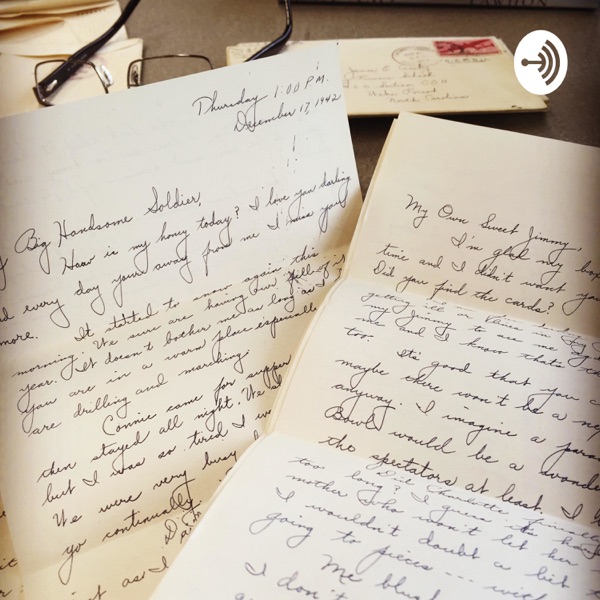 Thursday 1:00 P.M.
December 17, 1942
Big Handsome Soldier,
How is my honey today? I love you darling
every day your away from me I miss you
more.
It started to snow again this
morning. We sure are having our full of it this
year. It doesn't bother me as long as I
you are in a warm place especially
are drilling and marching.
Connie came for supper
then stayed all night. We
but I was so tired I
We were very busy
go continually.
as I
North Carolina
My Own Sweet Jimmy,
I'm glad my box
time and I didn't want you
Did you find the cards?
getting
my Jimmy to see me
me and I know that's
too.
It's good that you
maybe there won't be a
anyway. I imagine a
Bowl would be a
the spectators at least. I
Did Charlotte finally
too long? I guess she
mother who won't let her
I wouldn't doubt a bit
going to pieces ... with
Me
I don't